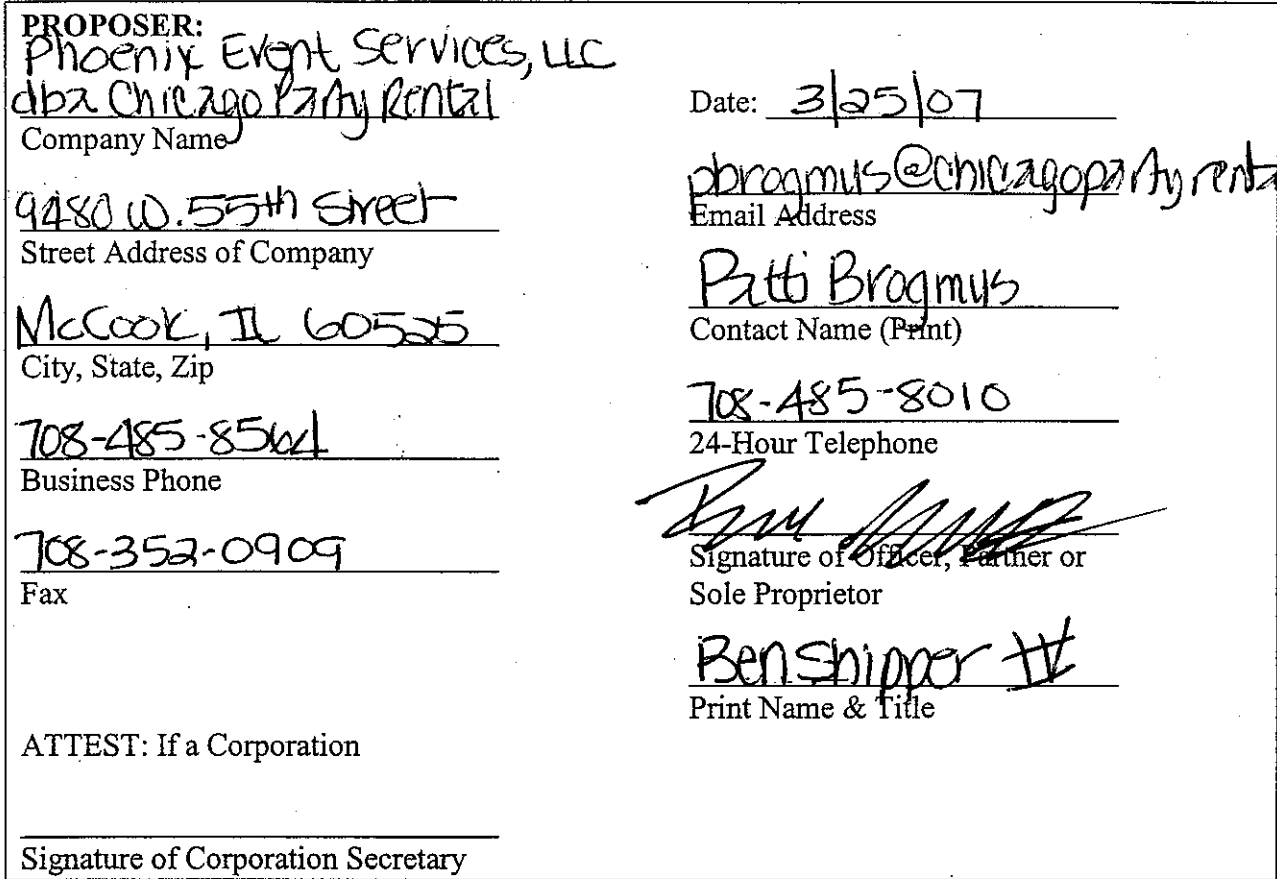 PROPOSER:
Phoenix Event Services, LLC
dba Chicago Party Rental
Company Name
9480 W. 55th Street
Street Address of Company
McCook, IL 60525
City, State, Zip
708-485-8564
Business Phone
708-352-0909
Fax
ATTEST: If a Corporation
Signature of Corporation Secretary
Date: 3/25/07
pbrogmus@chicagopartyrenta
Email Address
Patti Brogmus
Contact Name (Print)
708-485-8010
24-Hour Telephone
Signature of Officer, Partner or
Sole Proprietor
Ben Shipper
Print Name & Title